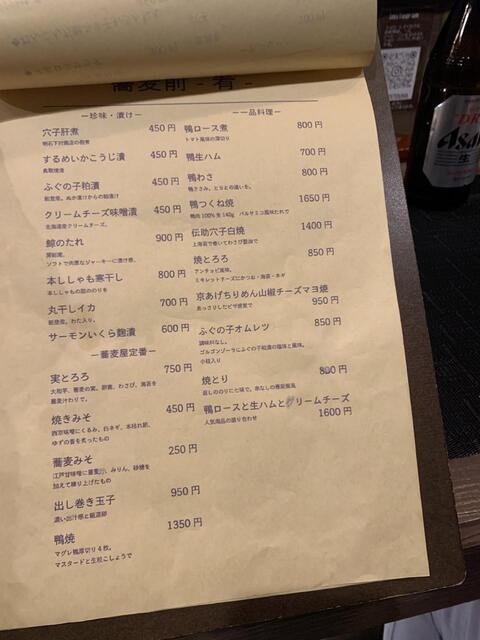 蕎麦前 - 肴 -
- 珍味・漬け -
穴子肝煮 450 円
明石下村商店の佃煮
するめいかこうじ漬 450 円
鳥取境港
ふぐの子粕漬 450 円
能登産。ぬか漬けからの粕漬け
クリームチーズ味噌漬 450 円
北海道産クリームチーズ。
鯨のたれ 900 円
房総産。
ソフトで肉厚なジャーキーに漬け感。
本ししゃも寒干し 800 円
本ししゃもの甜のりを
丸干しイカ 700 円
能登産。わた入り。
サーモンいくら麹漬 600 円
- 蕎麦屋定番 -
実とろろ 750 円
大和芋、蕎麦の実、卵黄、わさび、海苔を
蕎麦汁わりで。
焼きみそ 450 円
西京味噌にくるみ、白ネギ、本枯れ節、
ゆずの香を炙ったもの
蕎麦みそ 250 円
江戸甘味噌に蕎麦、みりん、砂糖を
加えて練り上げたもの
出し巻き玉子 950 円
濃い出汁感と厳選卵
鴨焼 1350 円
マグレ鴨厚切り4枚。
マスタードと生粒こしょうで
- 一品料理 -
鴨ロース煮 800 円
トマト風味の薄切り
鴨生ハム 700 円
鴨わさ 800 円
鴨ささみ。とりとの違いを。
鴨つくね焼 1650 円
鴨肉 100% 生 140g バルサミコ風味たれで
伝助穴子白焼 1400 円
上海苔で巻いてわさび醤油で
焼とろろ 850 円
アンチョビ風味。
ミモレットチーズにかつお・海苔・ネギ
京あげちりめん山椒チーズマヨ焼
あっさりしたピザ感覚で 950 円
ふぐの子オムレツ 850 円
調味料なし。
ゴルゴンゾーラにふぐの子粕漬の塩味と風味。
小柱入り
焼とり 800 円
鴨ロースと生ハムとクリームチーズ
人気商品の盛り合わせ 1600 円
Asahi
生